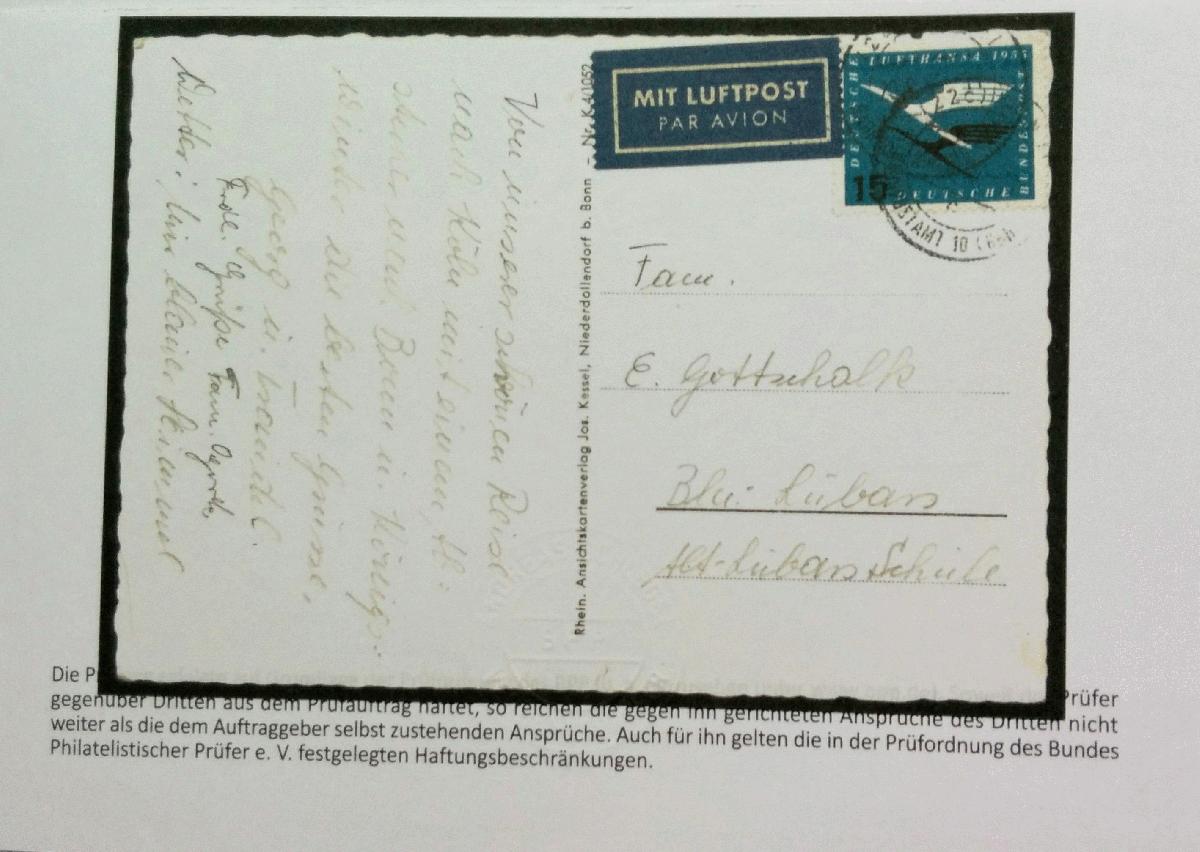 Von unserer schönen Reise
nach Köln mit einem
und Bonn u. Königs
wieder die besten Grüsse.
Georg u.
Frdl. Grüße Fam.
Wetter: Nur blauer Himmel
Rhein. Ansichtskartenverlag Jos. Kessel, Niederdollendorf b. Bonn - Nr. K 4/1052
MIT LUFTPOST
PAR AVION
LUFTHANSA 1955
DEUTSCHE
BUNDESPOST
DEUTSCHE
15
POSTAMT 10
Fam.
E. Gottschalk
Bln. Lübars
Alt-Lübars Schule
Die
Prüfer
gegenüber Dritten aus dem Prüfauftrag haftet, so reichen die gegen ihn gerichteten Ansprüche des Dritten nicht
weiter als die dem Auftraggeber selbst zustehenden Ansprüche. Auch für ihn gelten die in der Prüfordnung des Bundes
Philatelistischer Prüfer e. V. festgelegten Haftungsbeschränkungen.